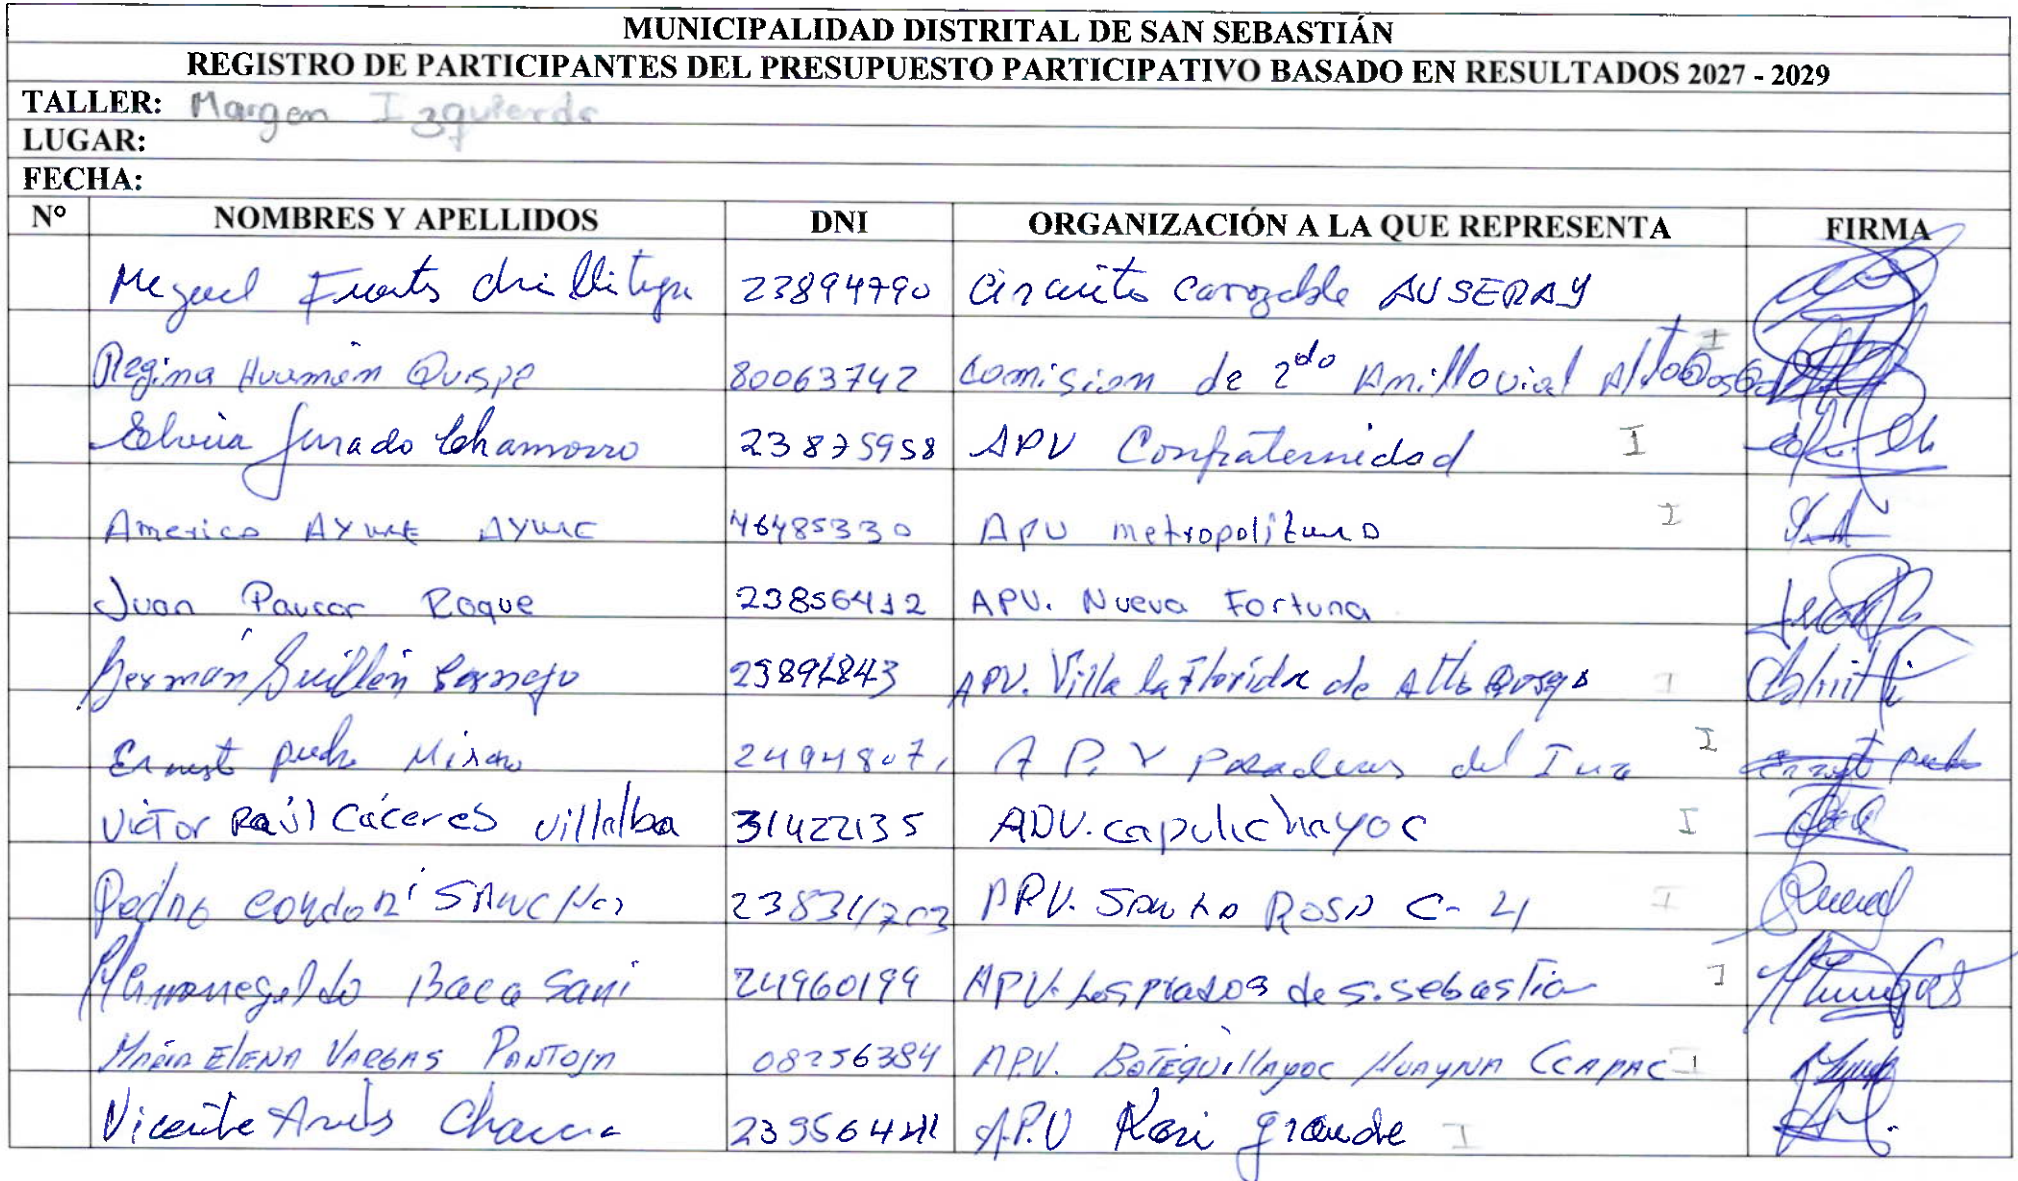 MUNICIPALIDAD DISTRITAL DE SAN SEBASTIÁN
REGISTRO DE PARTICIPANTES DEL PRESUPUESTO PARTICIPATIVO BASADO EN RESULTADOS 2027 - 2029
TALLER: Margen Izquierda
LUGAR:
FECHA:
N° NOMBRES Y APELLIDOS DNI ORGANIZACIÓN A LA QUE REPRESENTA FIRMA
Miguel 23894790 Circuito Carrozable AUSERAY
Regina Huamán Quispe 80063742 Comision de 2do Anillo vial Alto I
Elvira Jurado Chamorro 23875958 APV Confraternidad I
Americo AYME AYME 46485330 APV metropolitano I
Juan Paucar Roque 23856412 APV. Nueva Fortuna
Germán Guillén Cornejo APV. Villa la Florida de Alto Qosqo I
24948071 A P. V Paraderos del I
Victor Raúl Cáceres Villalba 31422135 APV. Capulichayoc I
Pedro Condori APV. Santa ROSA C-4 I
Baca Sani 24960199 APV. Los prados de S. Sebastian I
María ELENA VARGAS PANTOJA 08256384 APV. HUAYNA CCAPAC I
Vicente A.P.V Kari grande I